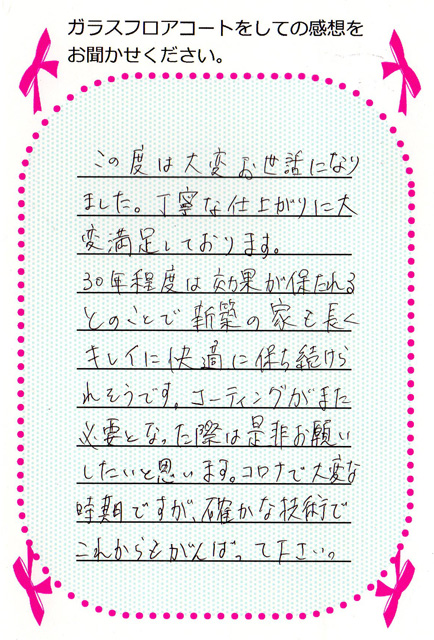 ガラスフロアコートをしての感想を
お聞かせください。
この度は大変お世話になり
ました。丁寧な仕上がりに大
変満足しております。
30年程度は効果が保たれる
とのことで新築の家も長く
キレイに快適に保ち続けら
れそうです。コーティングがまた
必要となった際は是非お願い
したいと思います。コロナで大変な
時期ですが、確かな技術で
これからもがんばって下さい。